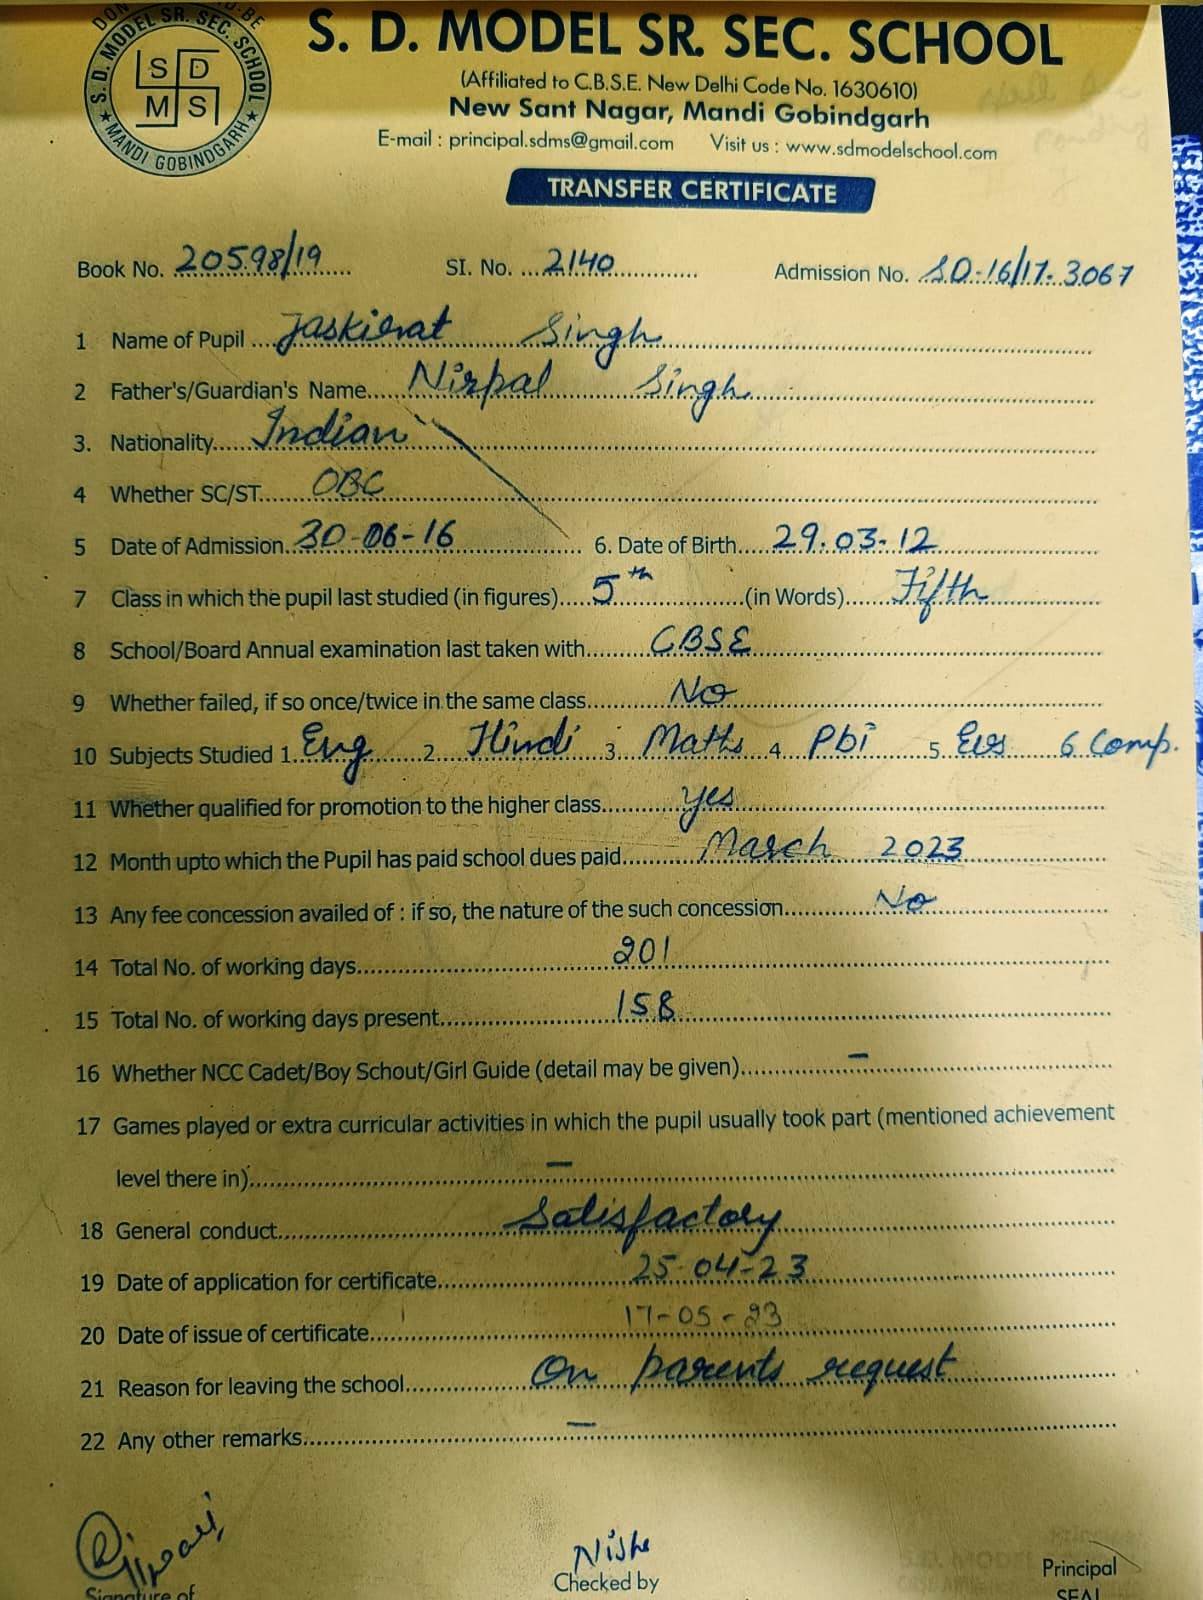 S. D. MODEL SR. SEC. SCHOOL
S. D. MODEL SR. SEC. SCHOOL
S D
M S
MANDI GOBINDGARH
(Affiliated to C.B.S.E. New Delhi Code No. 1630610)
New Sant Nagar, Mandi Gobindgarh
E-mail : principal.sdms@gmail.com Visit us : www.sdmodelschool.com
TRANSFER CERTIFICATE
Book No. 20598/19 SI. No. 2140 Admission No. SD-16/17-3067
1 Name of Pupil Jaskirat Singh
2 Father's/Guardian's Name Nirpal Singh
3. Nationality Indian
4 Whether SC/ST OBC
5 Date of Admission 30-06-16 6. Date of Birth 29.03-12
7 Class in which the pupil last studied (in figures) 5th (in Words) Fifth
8 School/Board Annual examination last taken with CBSE
9 Whether failed, if so once/twice in the same class No
10 Subjects Studied 1. Eng 2. Hindi 3 Maths 4 Pbi 5 Evs 6 Comp.
11 Whether qualified for promotion to the higher class yes
12 Month upto which the Pupil has paid school dues paid March 2023
13 Any fee concession availed of : if so, the nature of the such concession No
14 Total No. of working days 201
15 Total No. of working days present 158
16 Whether NCC Cadet/Boy Schout/Girl Guide (detail may be given) –
17 Games played or extra curricular activities in which the pupil usually took part (mentioned achievement
level there in) –
18 General conduct Satisfactory
19 Date of application for certificate 25-04-23
20 Date of issue of certificate 17-05-23
21 Reason for leaving the school On parents request
22 Any other remarks –
Nisha
Signature of Checked by Principal
SEAL